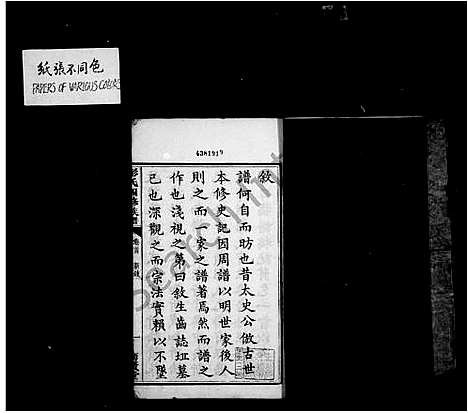 紙張不同色
PAPERS OF VARIOUS COLORS
6381919
敘
譜何自而昉也昔太史公倣古世
本修史記因周譜以明世家後人
則之而一家之譜著焉然而譜之
作也淺視之第曰敘生齒誌坵墓
已也深觀之而宗法實賴以不墜
卷首